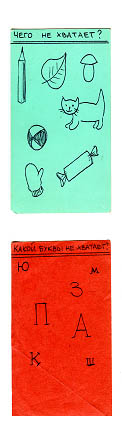 ЧЕГО НЕ ХВАТАЕТ?
КАКОЙ БУКВЫ НЕ ХВАТАЕТ?
Ю м
З
П А
Қ ш